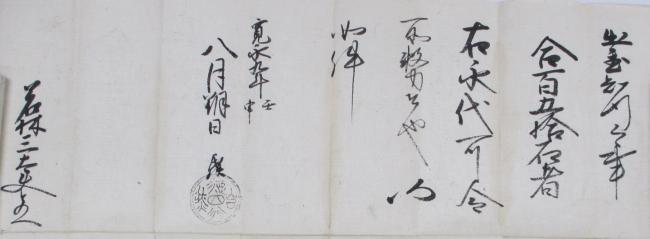 出置知行之事
合百五拾石者
右永代可令
所務者也仍
如件
寛永九年壬申
八月朔日
若林三太夫とのへ